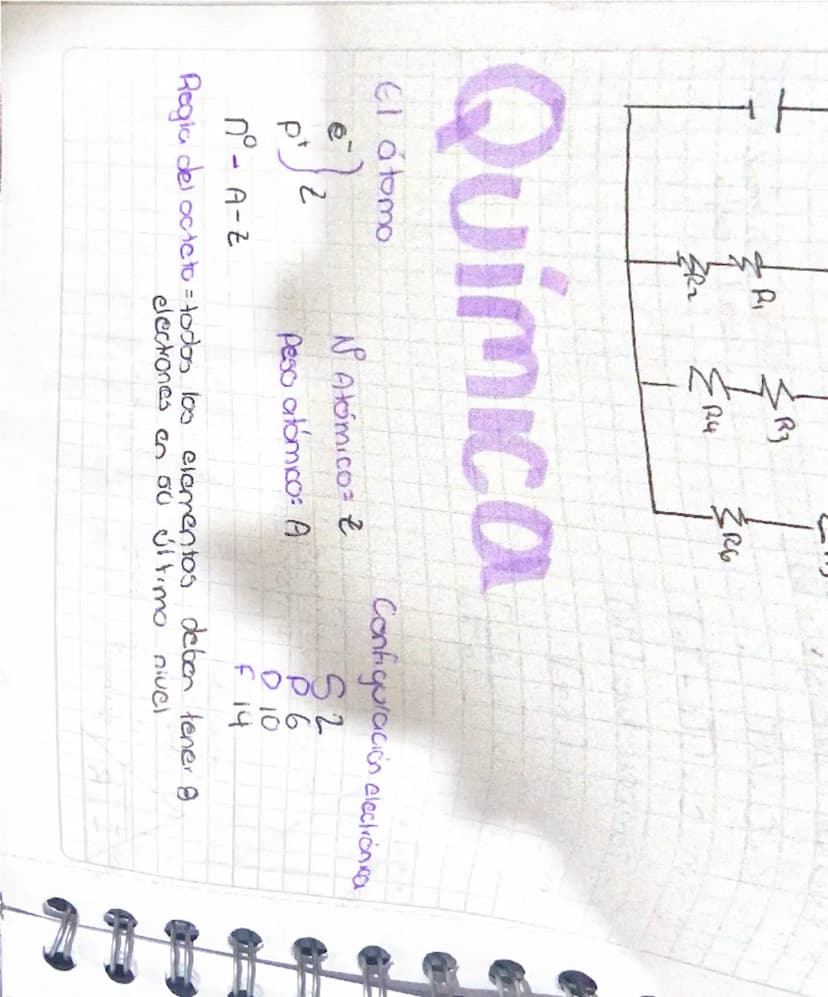 R1
R2
R3
R4
R6
Química
El átomo
e-
p+ } Z
n° - A-Z
N° Atómico= Z
Peso atómico= A
Configuración electrónica
S 2
P 6
D 10
F 14
Regla del octeto = todos los elementos deben tener 8
electrones en su último nivel